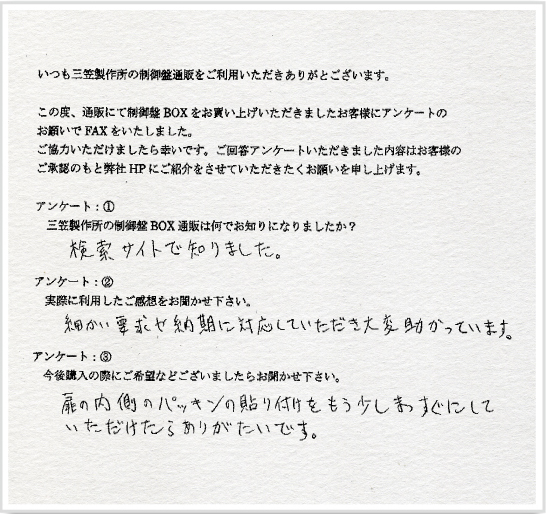 いつも三笠製作所の制御盤通販をご利用いただきありがとございます。
この度、通販にて制御盤BOXをお買い上げいただきましたお客様にアンケートの
お願いでFAXをいたしました。
ご協力いただけましたら幸いです。ご回答アンケートいただきました内容はお客様の
ご承認のもと弊社HPにご紹介をさせていただきたくお願いを申し上げます。
アンケート：①
三笠製作所の制御盤BOX通販は何でお知りになりましたか？
検索サイトで知りました。
アンケート：②
実際に利用したご感想をお聞かせ下さい。
細かい要求や納期に対応していただき大変助かっています。
アンケート：③
今後購入の際にご希望などございましたらお聞かせ下さい。
扉の内側のパッキンの貼り付けをもう少しまっすぐにして
いただけたらありがたいです。